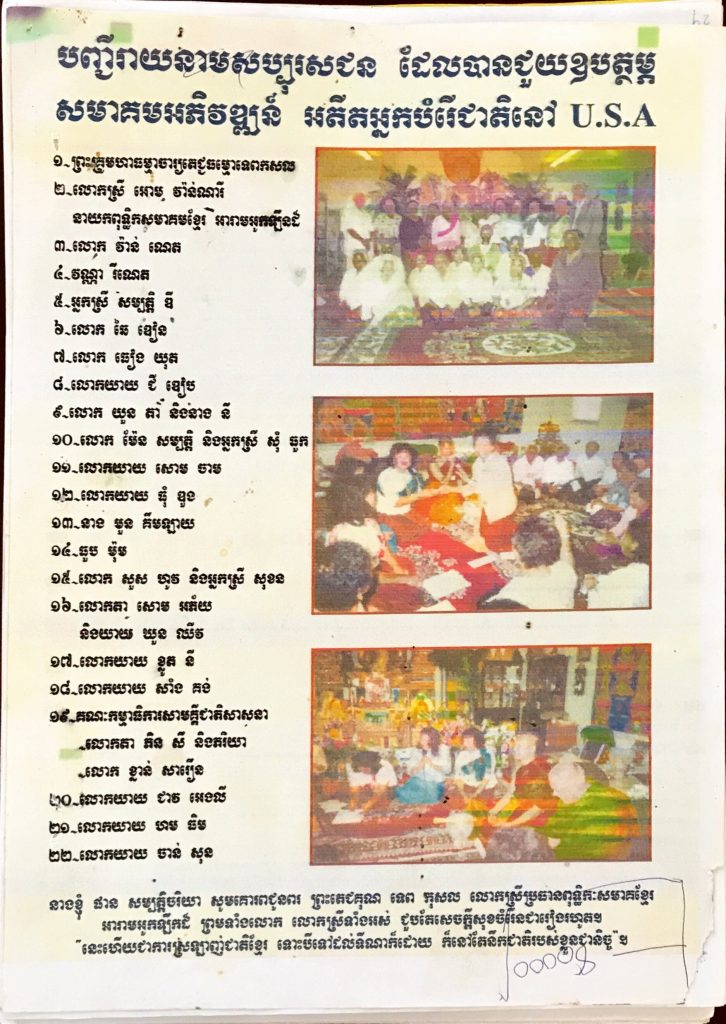 បញ្ជីរាយនាមសប្បុរសជន ដែលបានជួយឧបត្ថម្ភ
សមាគមអភិវឌ្ឍន៍ អតីតអ្នកបំរើជាតិនៅ U.S.A
១-ព្រះគ្រូមហាធម្មាចារ្យតេជធម្មោទេពកសល
២-លោកស្រី អោម វ៉ាន់ណារី
នាយកពុទ្ធិកសមាគមខ្មែរ អារាមអូកឡិនដ៍
៣-លោក វ៉ាន់ ណេត
៤-វណ្ណា រីណេត
៥-អ្នកស្រី សម្បត្តិ ឌី
៦-លោក ឆៃ ទៀន
៧-លោក ធៀង យុត
៨-លោកយាយ ជី ទៀប
៩-លោក យួន តា និងនាង នី
១០-លោក ម៉ែន សម្បត្តិ និងអ្នកស្រី សុំ ធូក
១១-លោកយាយ សោម ចាម
១២-លោកយាយ ធុំ ឌួង
១៣-នាង មួន គីមឡាយ
១៤-ធូប ម៉ុម
១៥-លោក សួស ហូវ និងអ្នកស្រី សុខន
១៦-លោកតា សោម អភ័យ
និងយាយ ឃួន ឈីវ
១៧-លោកយាយ ខ្លូត នី
១៨-លោកយាយ សាំង គង់
១៩-គណៈកម្មាធិការសាមគ្គីជាតិសាសនា
-លោកតា ភិន សី និងភរិយា
-លោក ខ្លាន់ សារឿន
២០-លោកយាយ ជាវ អេងលី
២១-លោកយាយ ហម ធិម
២២-លោកយាយ ចាន់ សុន
នាងខ្ញុំ ផាន សម្បត្តិចរិយា សូមគោរពជូនពរ ព្រះតេជគុណ ទេព កុសល លោកស្រីប្រធានពុទ្ធិកៈសមាគខ្មែរ
អារាមអូកឡិកដ៍ ព្រមទាំងលោក លោកស្រីទាំងអស់ ជួបតែសេចក្តីសុខចំរើនជារៀងរហូត។
"នេះហើយជាការស្រឡាញ់ជាតិខ្មែរ ទោះបីទៅដល់ទីណាក៏ដោយ ក៏នៅតែនឹកជាតិរបស់ខ្លួនជានិច្ច"។